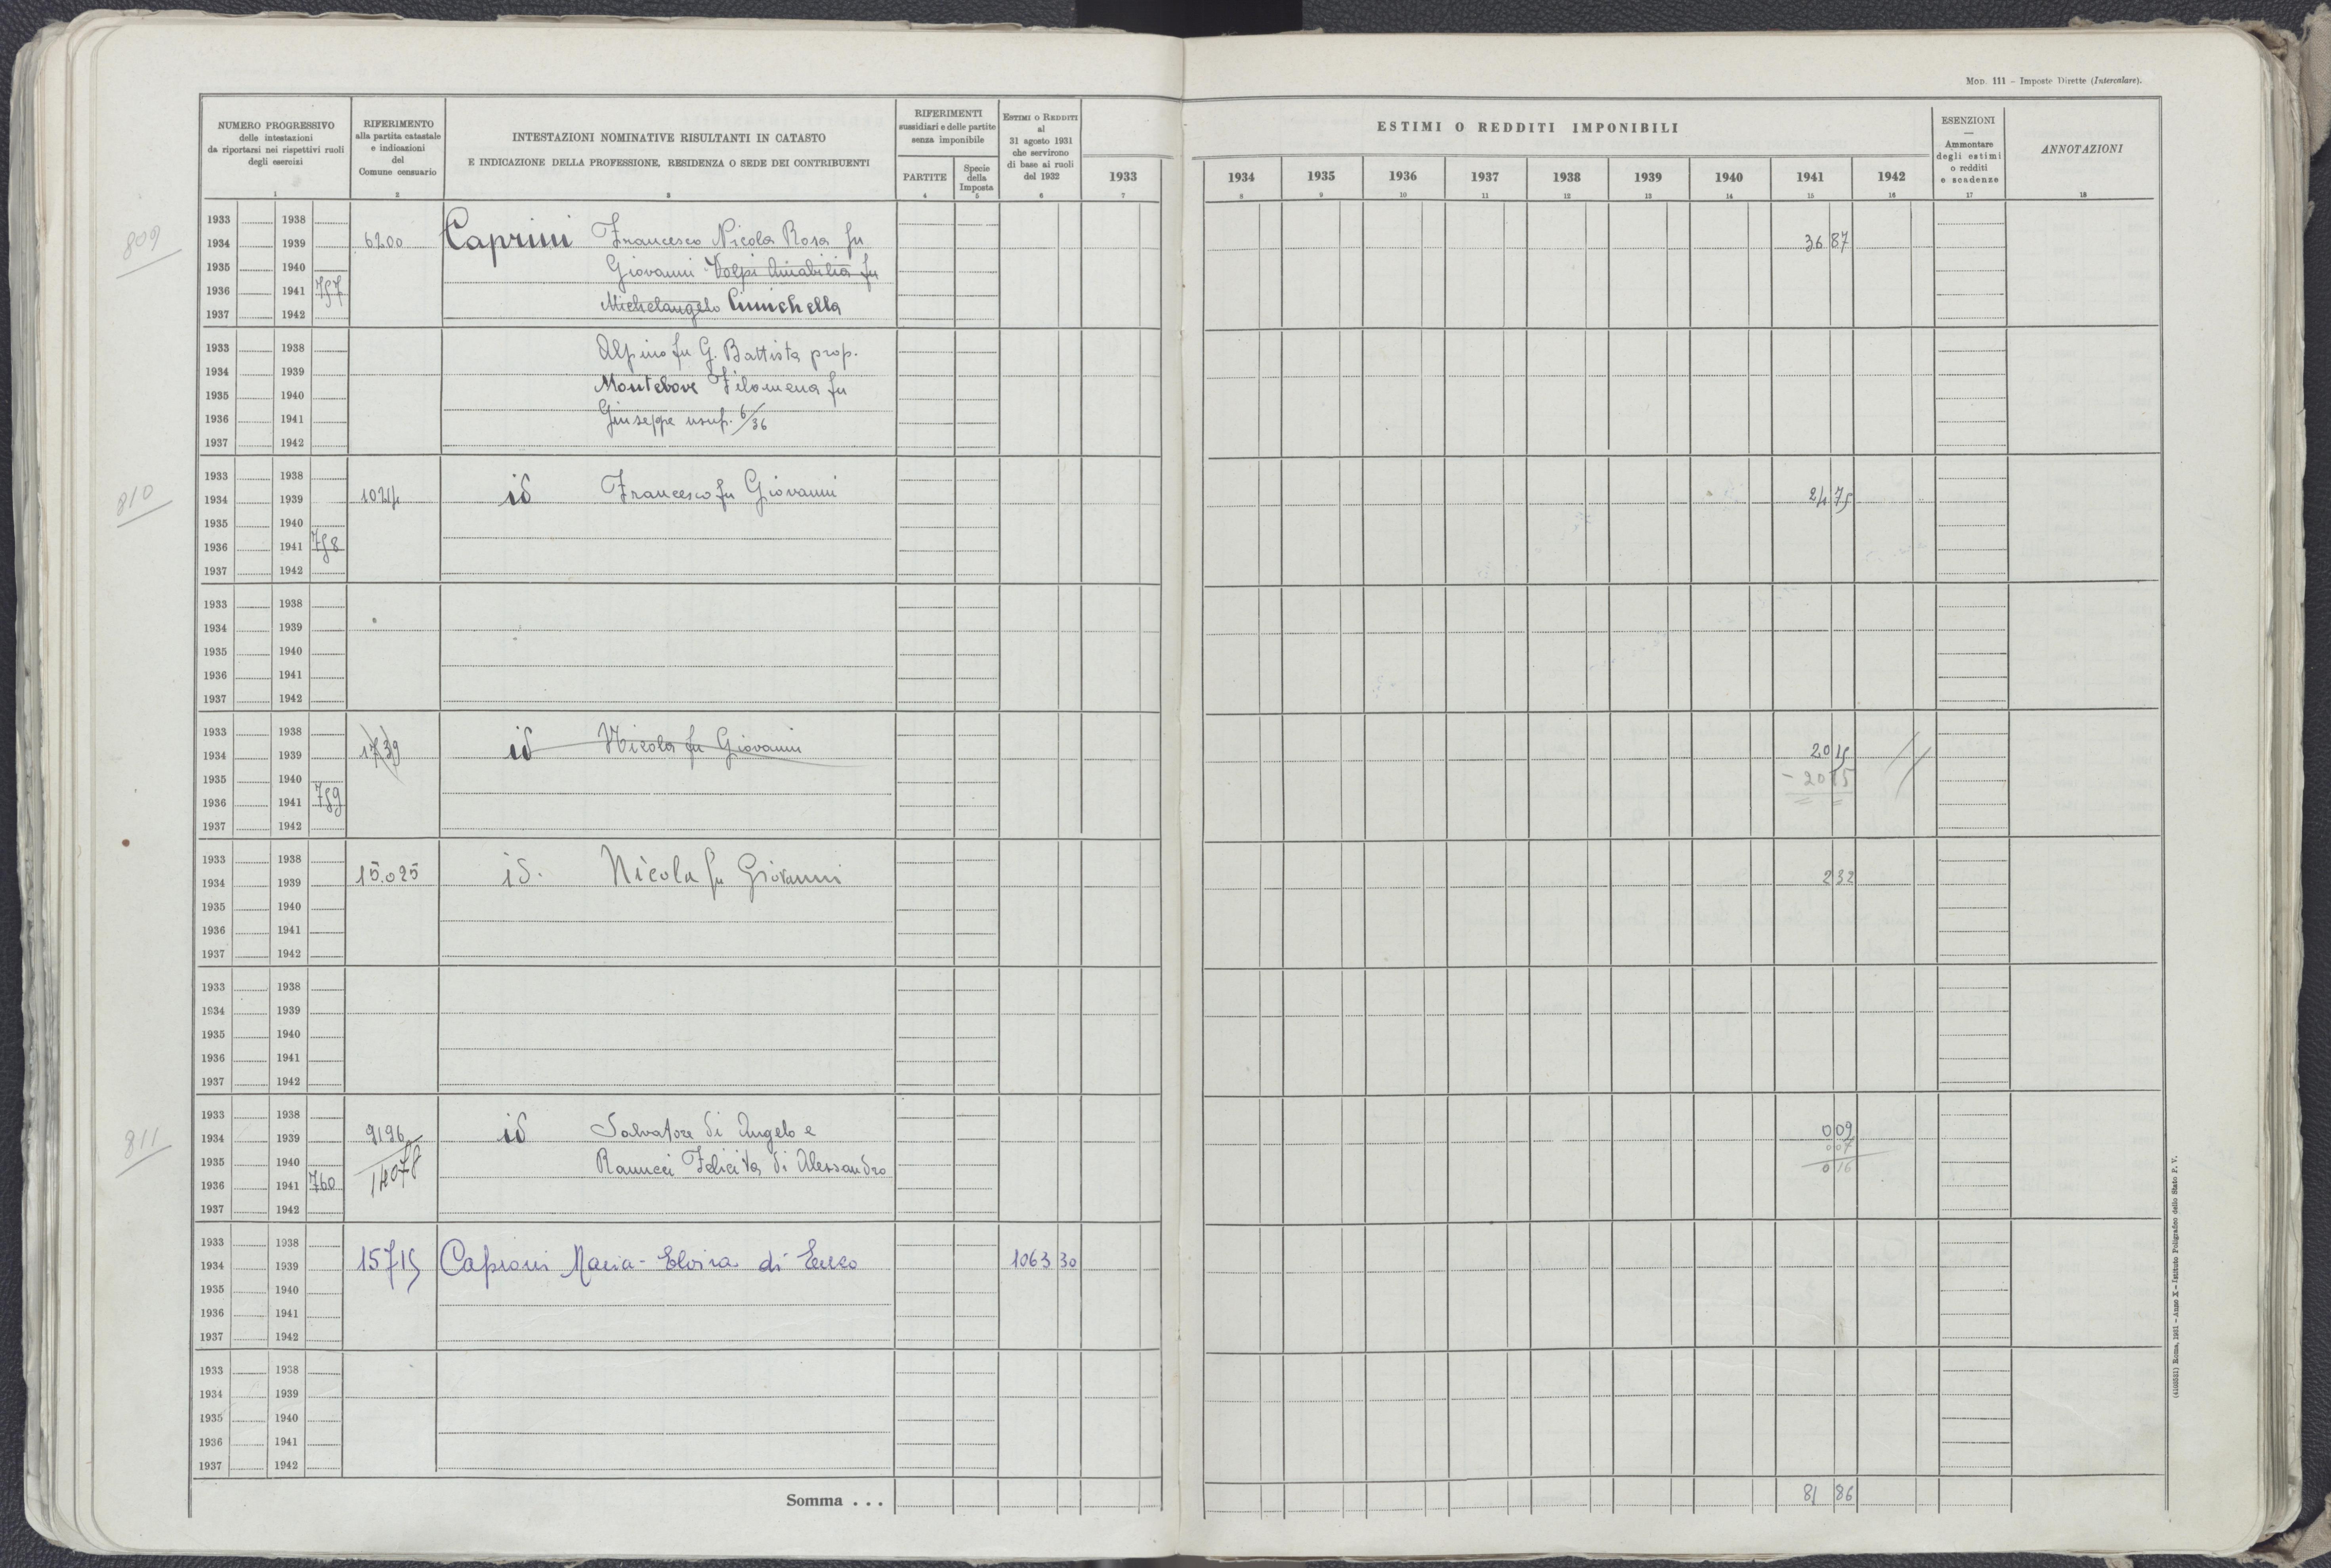 MOD. 111 – Imposte Dirette (Intercalare).
NUMERO PROGRESSIVO
delle intestazioni
da riportarsi nei rispettivi ruoli
degli esercizi
1
RIFERIMENTO
alla partita catastale
e indicazioni
del
Comune censuario
2
INTESTAZIONI NOMINATIVE RISULTANTI IN CATASTO
E INDICAZIONE DELLA PROFESSIONE, RESIDENZA O SEDE DEI CONTRIBUENTI
3
RIFERIMENTI
sussidiari e delle partite
senza imponibile
PARTITE
4
Specie
della
Imposta
5
ESTIMI O REDDITI
al
31 agosto 1931
che servirono
di base ai ruoli
del 1932
6
1933
7
ESTIMI O REDDITI IMPONIBILI
1934 1935 1936 1937 1938 1939 1940 1941 1942
8 9 10 11 12 13 14 15 16
ESENZIONI
—
Ammontare
degli estimi
o redditi
e scadenze
17
ANNOTAZIONI
18
809
1933 1938
1934 1939 6200 Caprini Francesco Nicola Rosa fu 36 87
1935 1940 Giovanni Volpi Amabilia fu
1936 1941 757 Michelangelo Cimichella
1937 1942
1933 1938 Alpino fu G. Battista prop.
1934 1939 Montebove Filomena fu
1935 1940
1936 1941 Giuseppe usuf. 6/36
1937 1942
810
1933 1938
1934 1939 1024 id Francesco fu Giovanni 24 75
1935 1940
1936 1941 758
1937 1942
1933 1938
1934 1939
1935 1940
1936 1941
1937 1942
1933 1938
1934 1939 1739 id Nicola fu Giovanni 20 15
1935 1940 – 20 15
1936 1941 759
1937 1942
1933 1938
1934 1939 15.025 id. Nicola fu Giovanni 2 32
1935 1940
1936 1941
1937 1942
1933 1938
1934 1939
1935 1940
1936 1941
1937 1942
811
1933 1938
1934 1939 9196 id Salvatore di Angelo e 0 09
0 07
1935 1940 14078 Ranucci Felicita di Alessandro 0 16
1936 1941 760
1937 1942
1933 1938
1934 1939 15715 Caproni Maria-Elvira di 1063 30
1935 1940
1936 1941
1937 1942
1933 1938
1934 1939
1935 1940
1936 1941
1937 1942
Somma . . . 81 86
(4103531) Roma, 1931 – Anno X – Istituto Poligrafico dello Stato P. V.